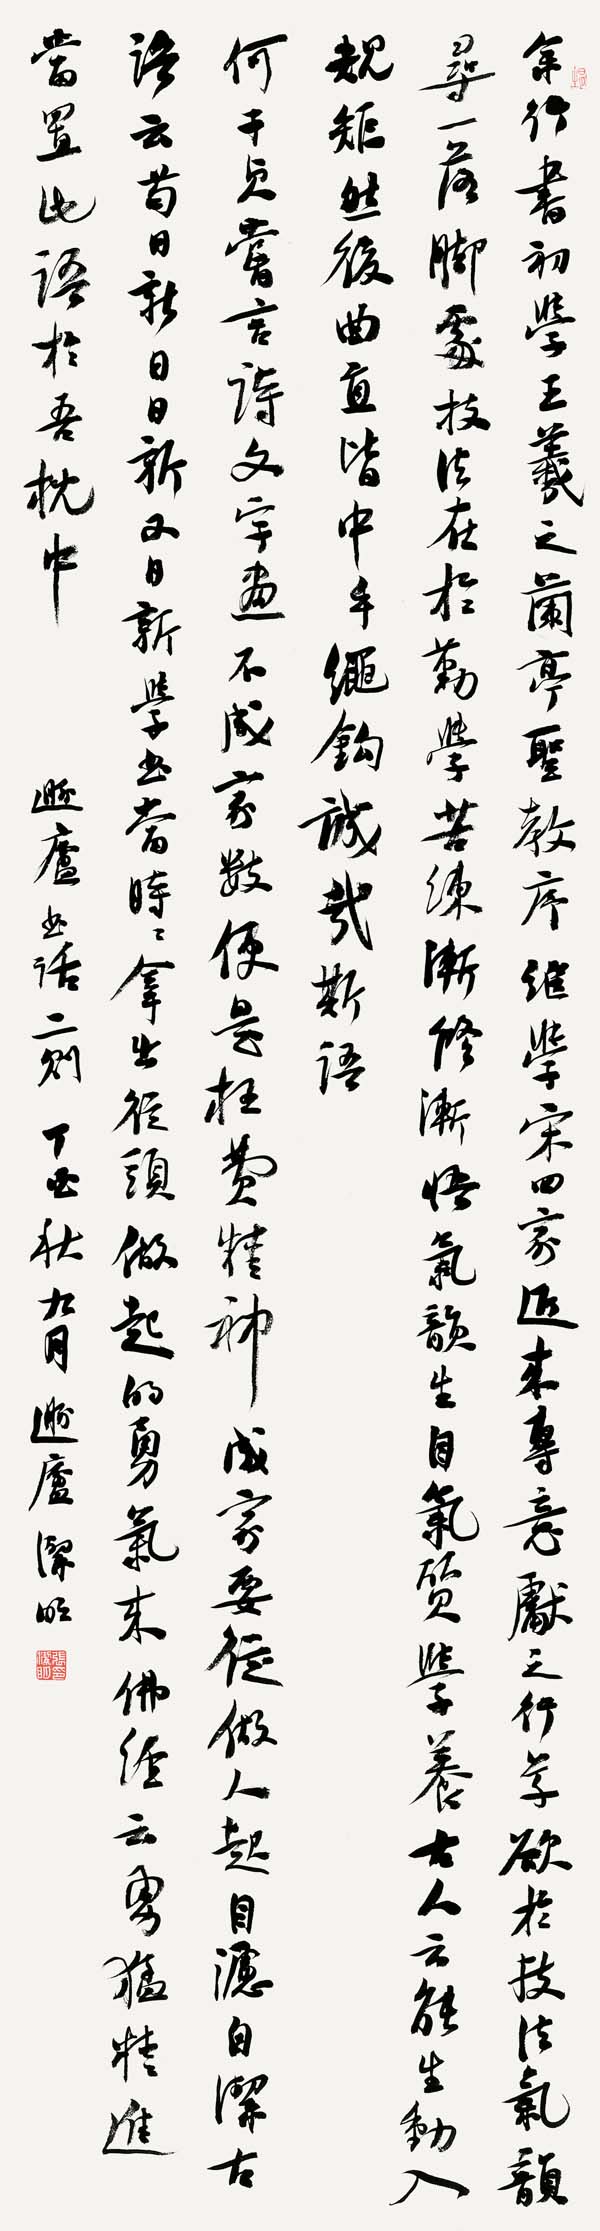 余行書初學王羲之蘭亭聖教序繼學宋四家近來專意獻之行草欲於技法氣韻
尋一落腳處技法在於勤學苦練漸修漸悟氣韻生自氣質學養古人云能生動入
規矩然後曲直皆中乎繩鈎誠哉斯語
何子貞嘗言詩文字畫不成家數便是枉費精神成家要從做人起自濾自潔古
語云苟日新日日新又日新學書當時時拿出從頭做起的勇氣來佛經云勇猛精進
當置此語於吾枕中 遯廬書話二則 丁酉秋九月 遯廬潔明